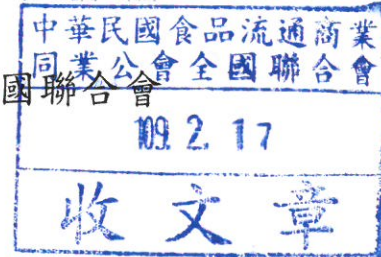 中華民國食品流通商業
同業公會全國聯合會
國聯合會
109. 2. 17
收文章